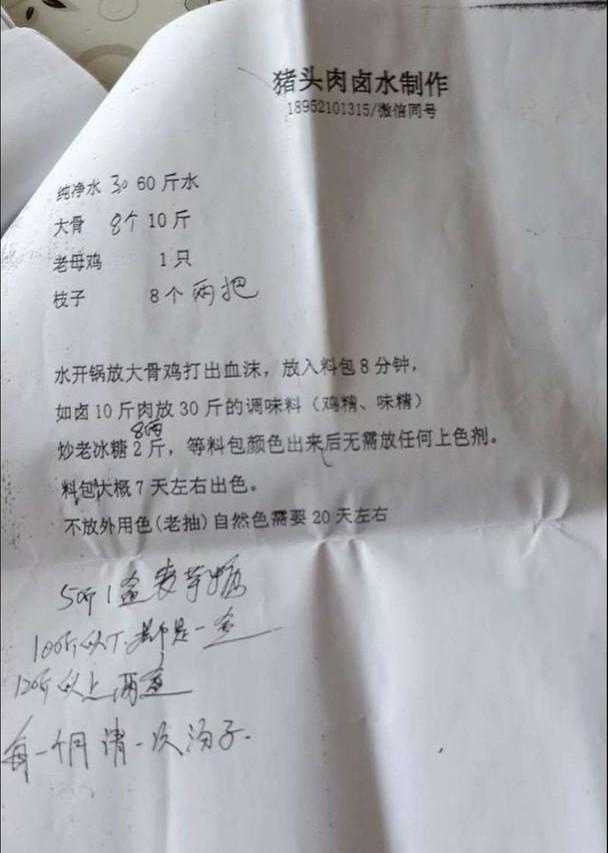 猪头肉卤水制作
18952101315/微信同号
纯净水 30 60 斤水
大骨 8个 10 斤
老母鸡 1 只
枝子 8 个 两把
水开锅放大骨鸡打出血沫，放入料包 8 分钟，
如卤 10 斤肉放 30 斤的调味料（鸡精、味精）
8两
炒老冰糖 2 斤，等料包颜色出来后无需放任何上色剂。
料包大概 7 天左右出色。
不放外用色(老抽)自然色需要 20 天左右
5斤1壶麦芽糖
10斤以下都是一壶
12斤以上两壶
每一个月清一次汤子.